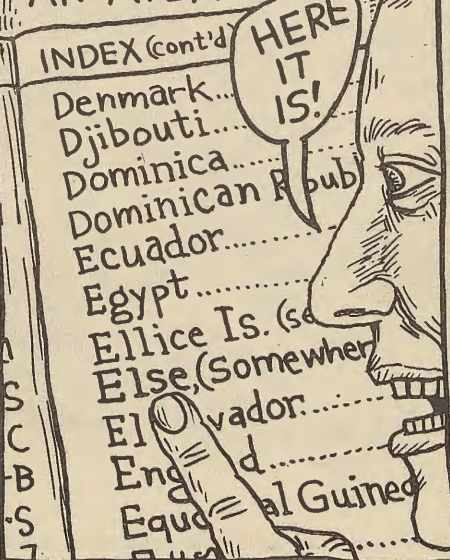 INDEX (cont'd)
HERE
IT
IS!
Denmark...
Djibouti....
Dominica........
Dominican R pub
Ecuador..........
Egypt ............
Ellice Is. (se
Else, (Somewher
El vador......
Eng d..........
Equa al Guinea
S
C
-B
-S